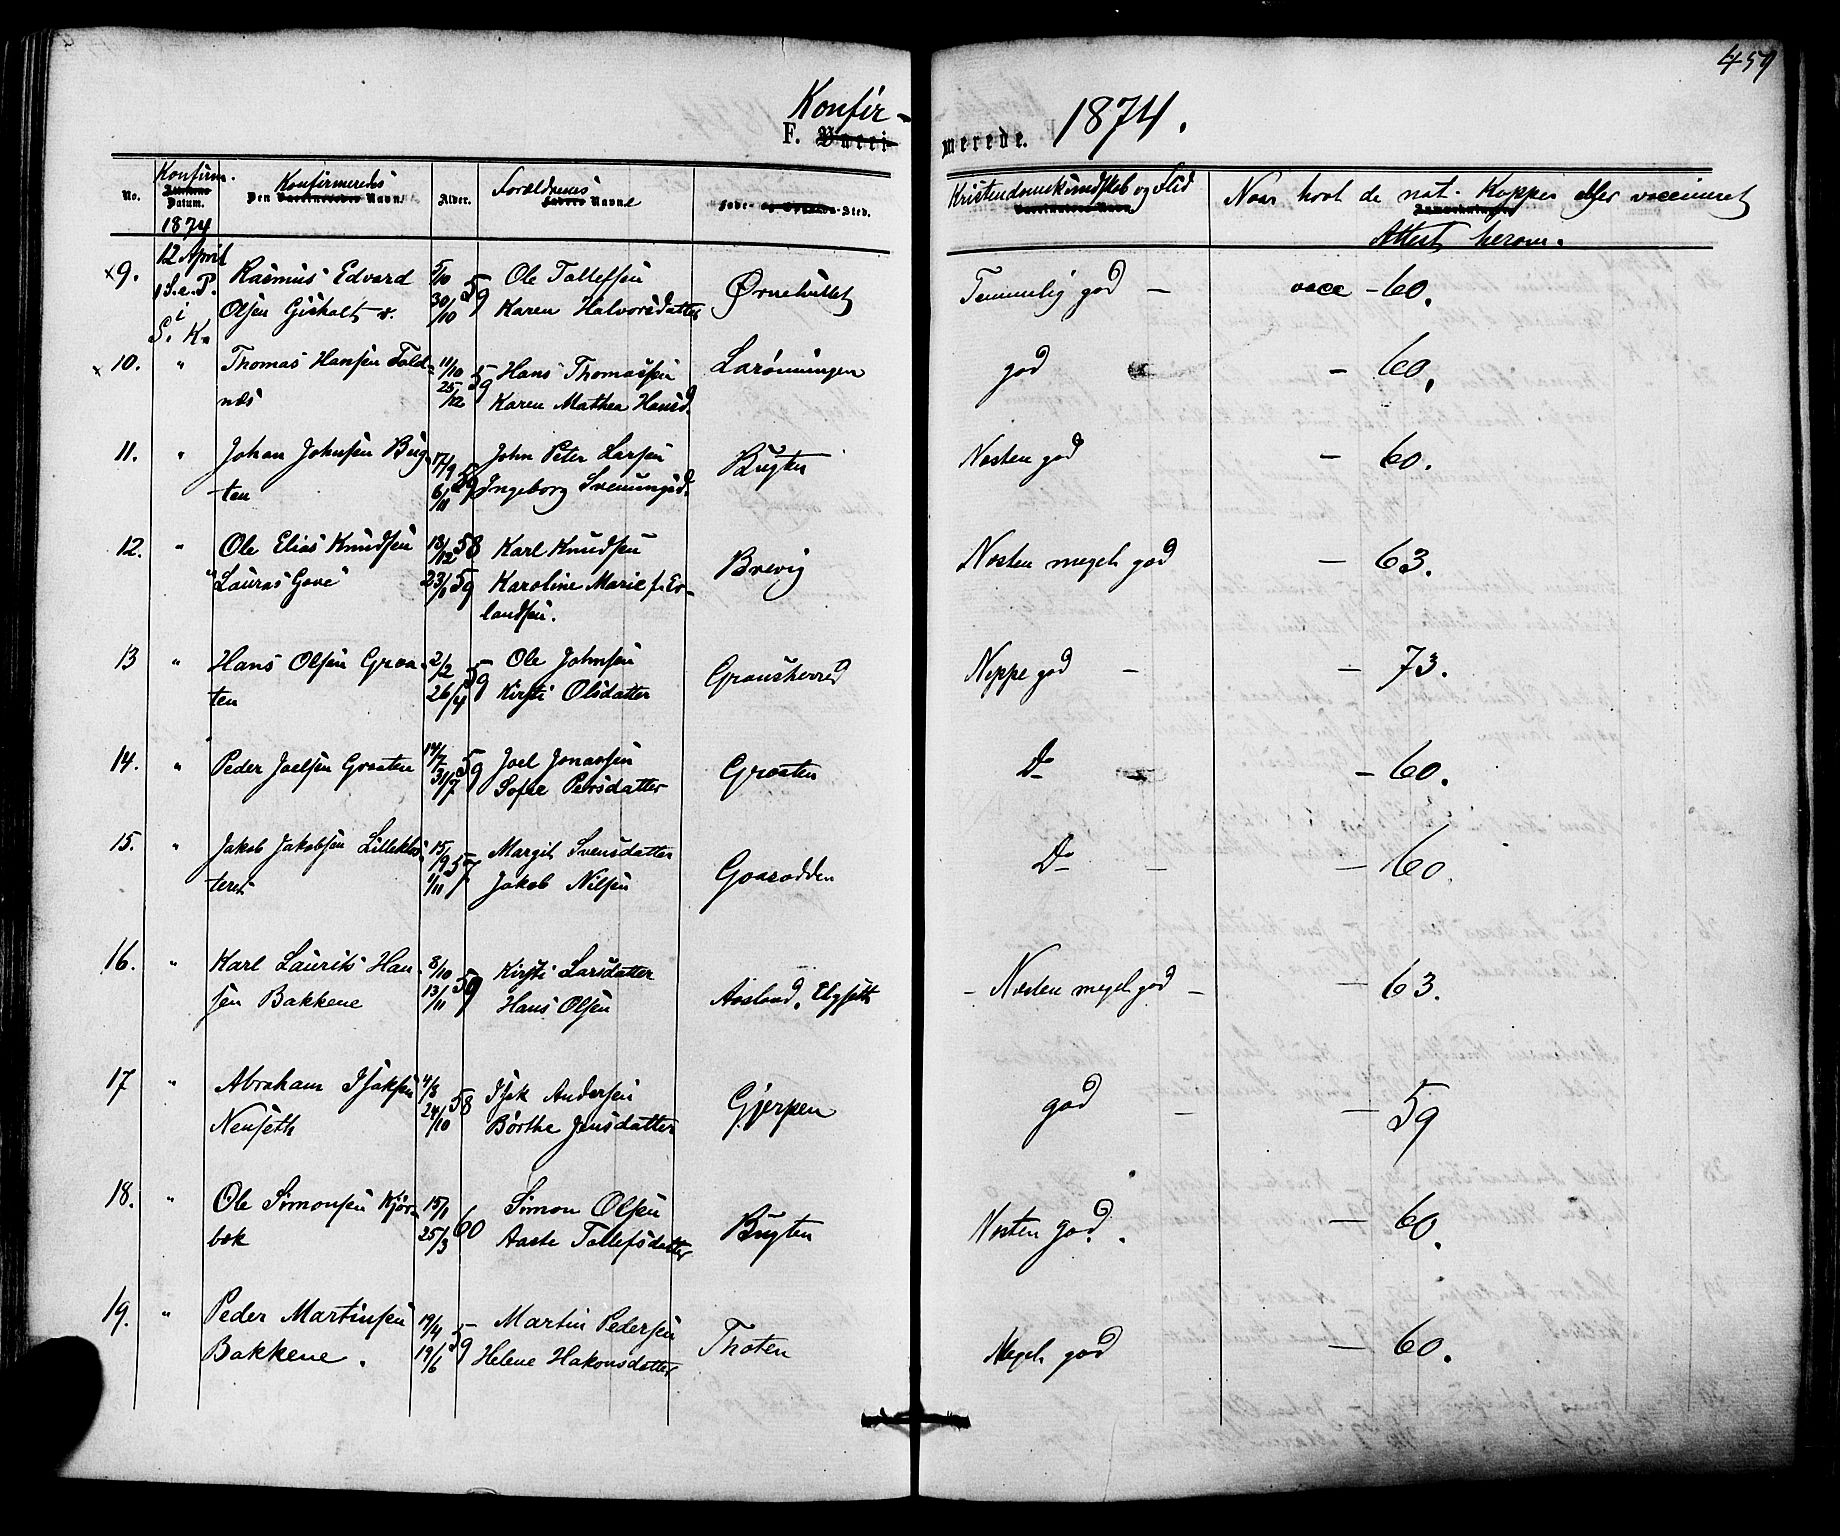 459
Konfir-
F. Vacci-
merede. 1874.
No.
Konfirm.
Datum.
Konfirmeredes
Den Vaccineredes Navn.
Alder.
Forældrenes
Faders Navne
Føde- og Opholds-Sted.
Kristendomskundskab og Flid
Vaccinatørs Navn
Naar havt de nat. Kopper eller vaccineret
Anmærkninger
Attest herom.
1874
x9. 12 April Rasmus Edvard 5/10 59 Ole Tollefsen Ørnehullet Temmelig god — vacc - 60.
1 S. e. P. Olsen Gisholt v. 30/10 Karen Halvorsdatter
i
S. K.
x 10. " Thomas Hansen Fold- 11/10 59 Hans Thomassen Larønningen god — 60.
næs 25/12 Karen Mathea Hansd.
11. " Johan Johnsen Bug- 17/9 59 John Peter Larsen Bugten Næsten god — 60.
ten 6/11 Ingeborg Svenungsd.
12. " Ole Elias Knudsen 18/12 58 Karl Knudsen Brevig Næsten meget god — 63.
"Lauras Gave" 23/1 59 Karoline Marie f. Er-
landsen.
13 " Hans Olsen Graa- 2/2 59 Ole Johnsen Gransherred Neppe god — — 73.
ten 26/4 Kirsti Olsdatter
14. " Peder Joelsen Graaten 14/7 59 Joel Jonassen Graaten Do — 60.
31/7 Sofie Persdatter
15. " Jakob Jakobsen Lilleklos- 15/9 57 Margit Svensdatter Gaasodden Do — — 60.
teret 1/11 Jakob Nilsen
16. " Karl Laurits Han- 8/10 59 Kirsti Larsdatter Aasland, Elgsæth - Næsten meget god - — 63.
sen Bakkene 13/11 Hans Olsen
17 " Abraham Isaksen 4/3 58 Isak Andersen Gjerpen god — — 59
Nenseth 24/10 Børthe Jensdatter
18. " Ole Simonsen Kjør- 15/1 60 Simon Olsen Bugten Næsten god. — 60.
bæk 25/3 Aaste Tollefsdatter
19. " Peder Martinsen 19/4 59 Martin Pedersen Thoten Meget god — 60.
Bakkene. 19/6 Helene Hakonsdatter